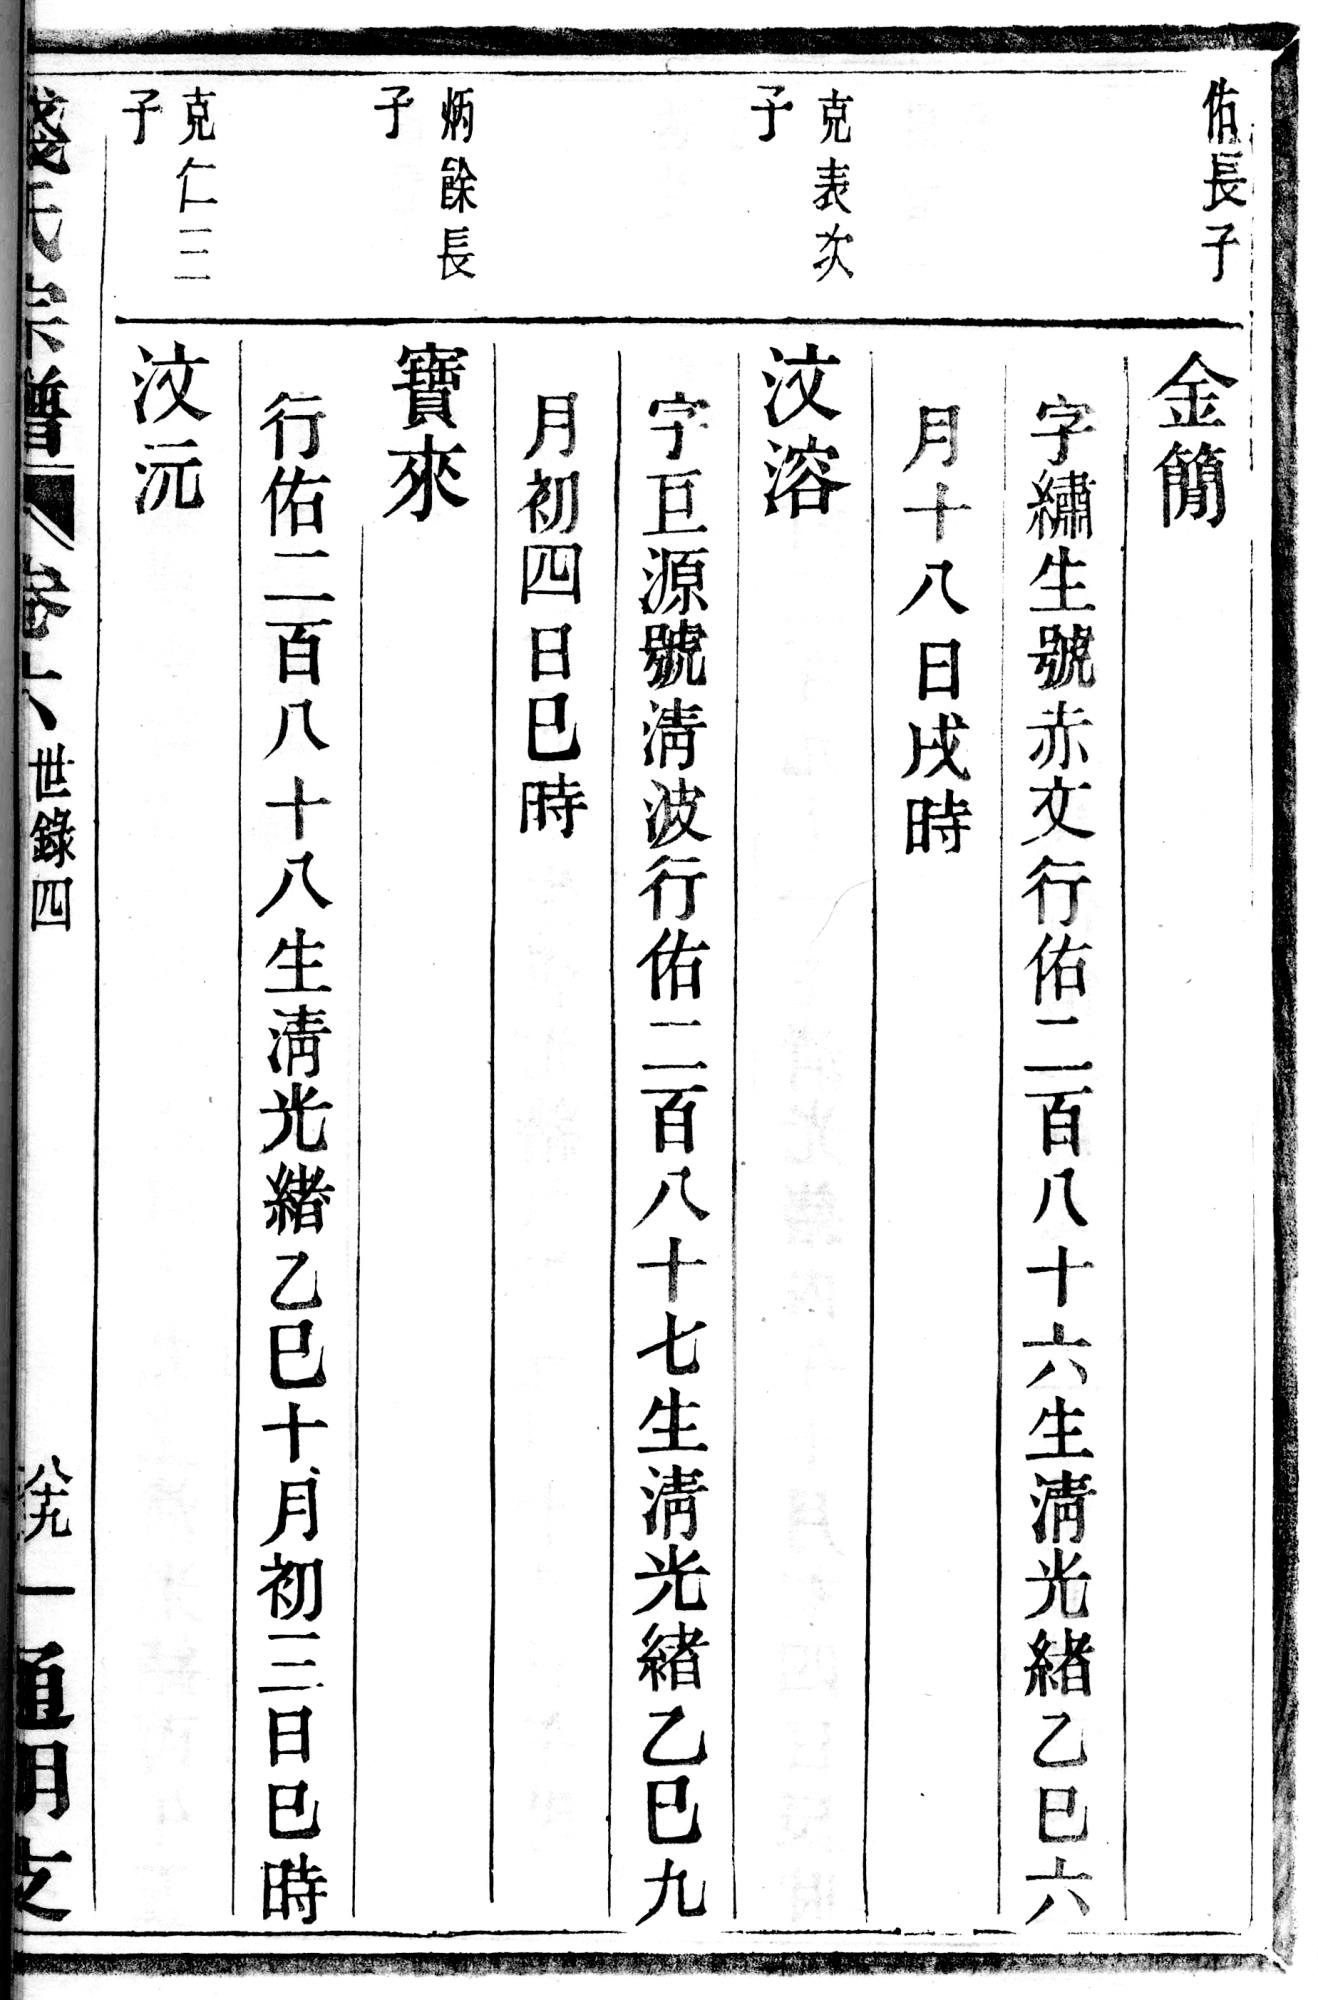 佑長子
金簡
字繡生號赤文行佑二百八十六生淸光緒乙巳六
月十八日戌時
克表次
子
汶溶
字巨源號淸波行佑二百八十七生淸光緒乙巳九
月初四日巳時
炳餘長
子
寶來
行佑二百八十八生淸光緒乙巳十月初三日巳時
克仁三
子
汶沅
氏宗譜
卷六
世錄四
八十九
通明支